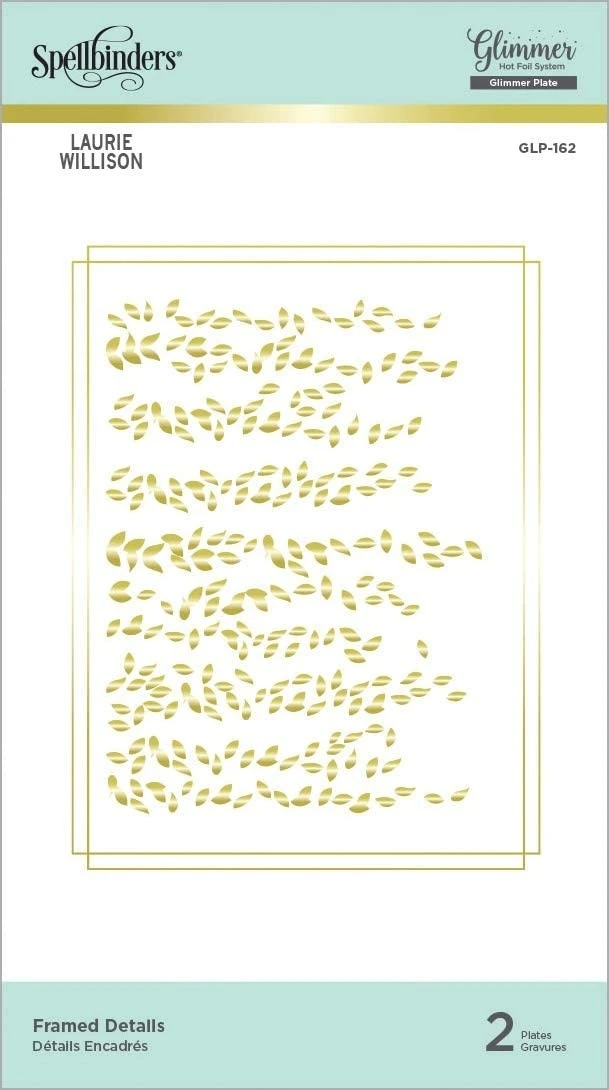 Spellbinders®
Glimmer
Hot Foil System
Glimmer Plate
LAURIE
WILLISON
GLP-162
Framed Details
Détails Encadrés
2
Plates
Gravures